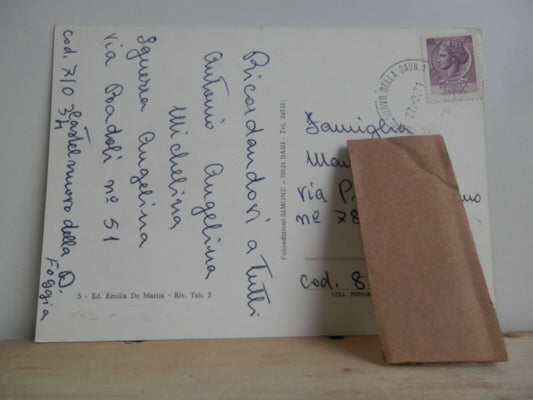 Ricordandovi a tutti
Antonio Angelina
Michelina
Sguera Angelina
via Radoli nº 51
cod. 71034
Castelnuovo della D.
Foggia
5 - Ed. Emilia De Mattia - Riv. Tab. 2
Fotoedizioni SIMONE - 70124 BARI - Tel.
NUOVO DELLA DAUN
Famiglia
via P
nº 78
cod. 8
VERA FOTOGR